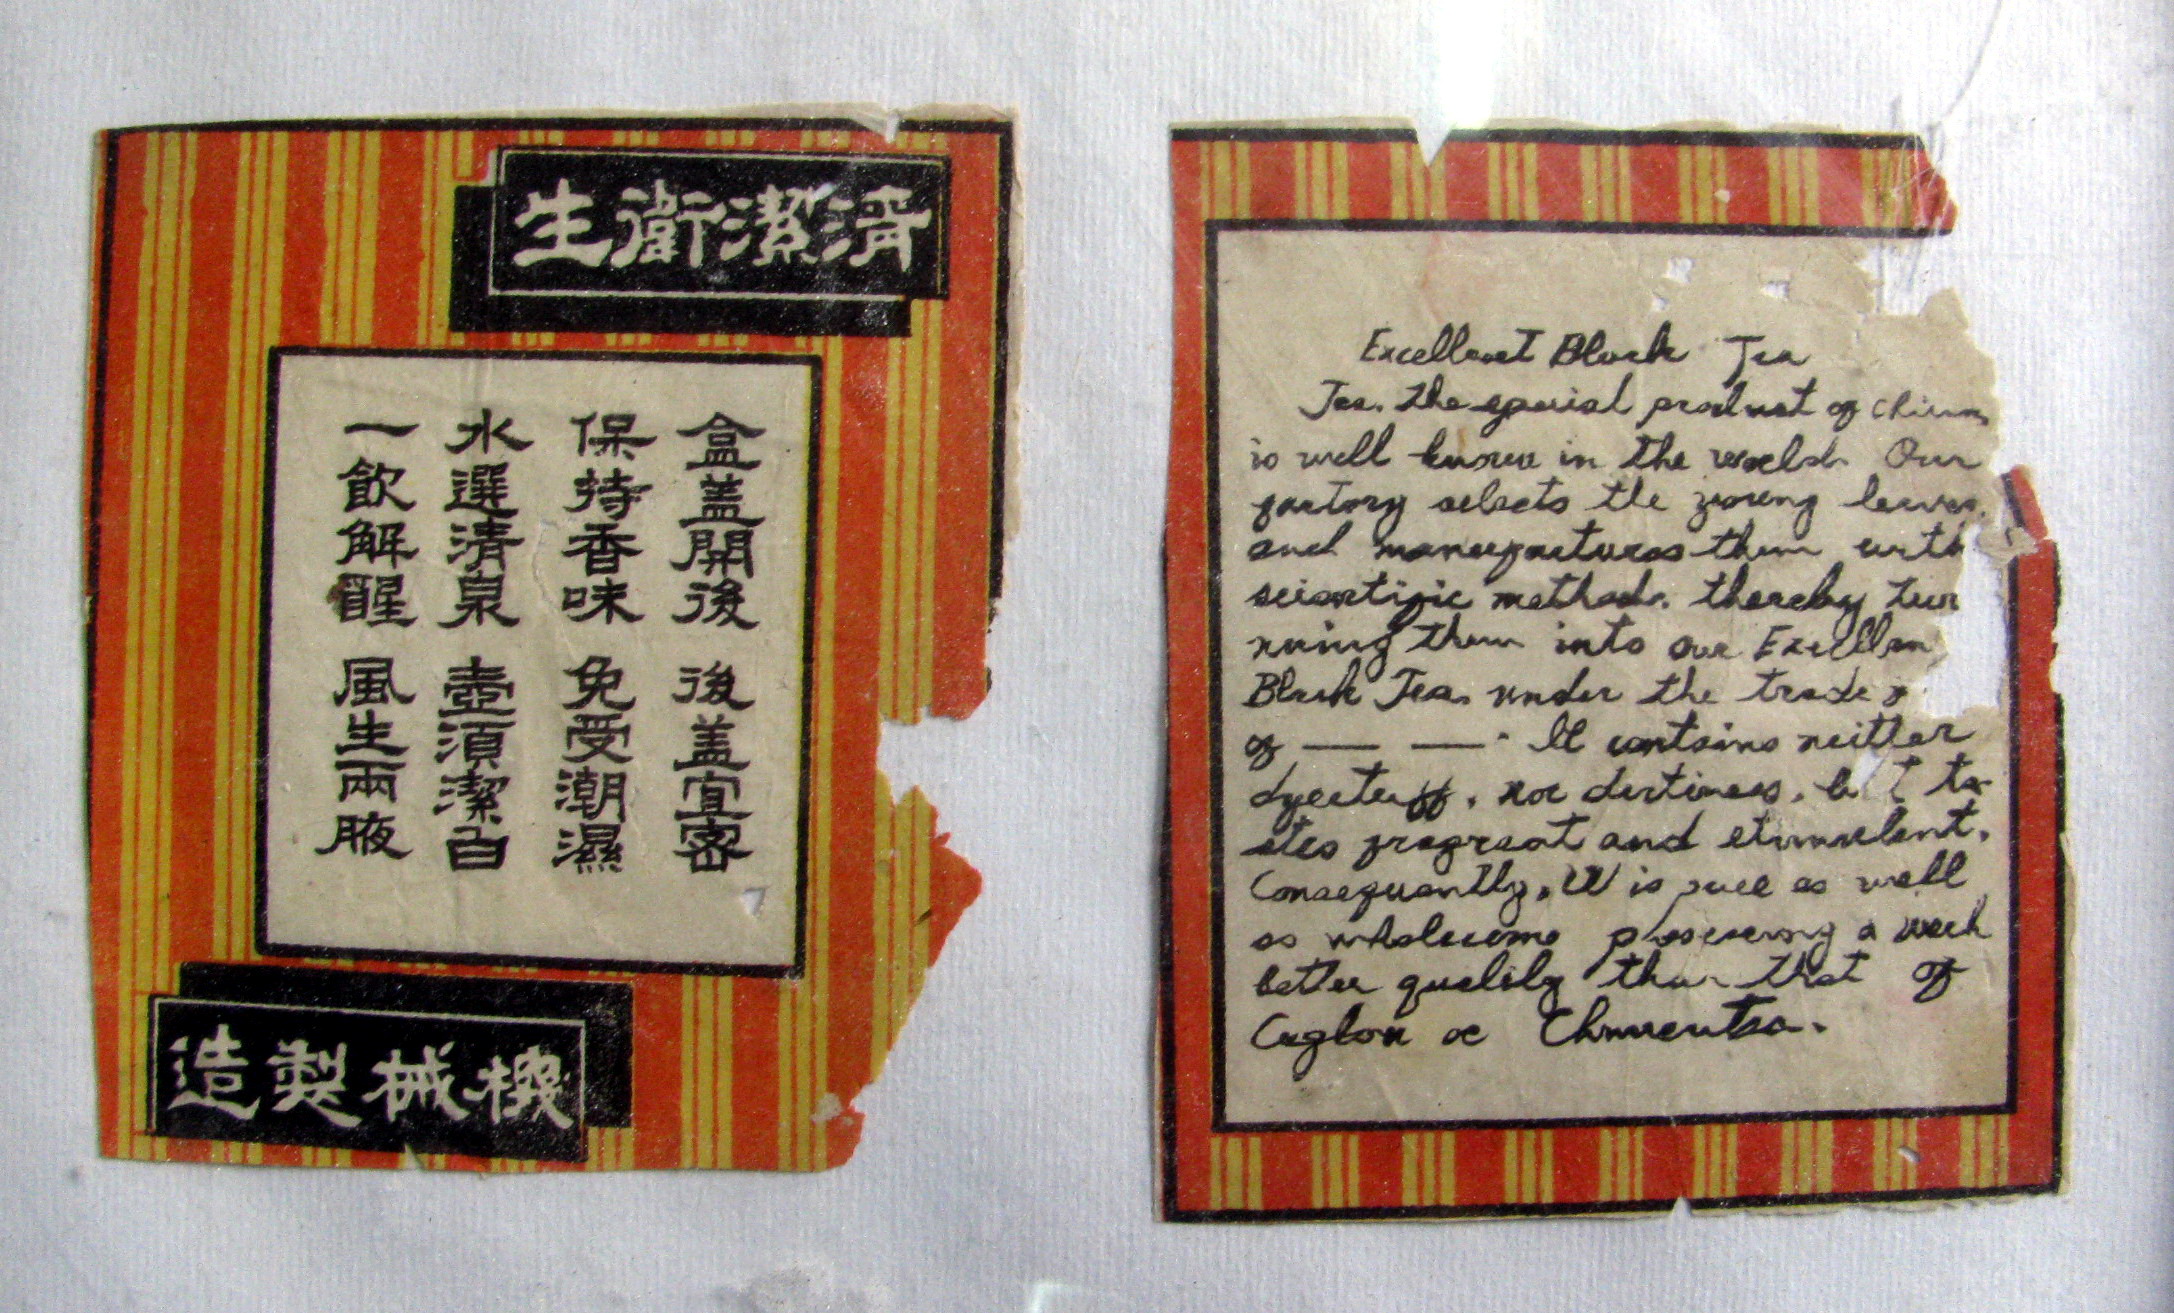 清潔衛生
盒蓋開後 後蓋宜密
保持香味 免受潮濕
水選清泉 壺須潔白
一飲解醒 風生兩腋
機械製造
Excellent Black Tea
Tea. the special product of China
is well known in the world. Our
factory selects the young leaves.
and manufactures them with
scientific methods. thereby tur
nning them into our Excellen
Black Tea. under the trade
of — — . It contains neither
dyestuff, nor dirtiness, but ta
stes fragrant and stimulent.
Consequently, it is pure as well
as wholesome possessing a much
better quality than that of
Ceylon or